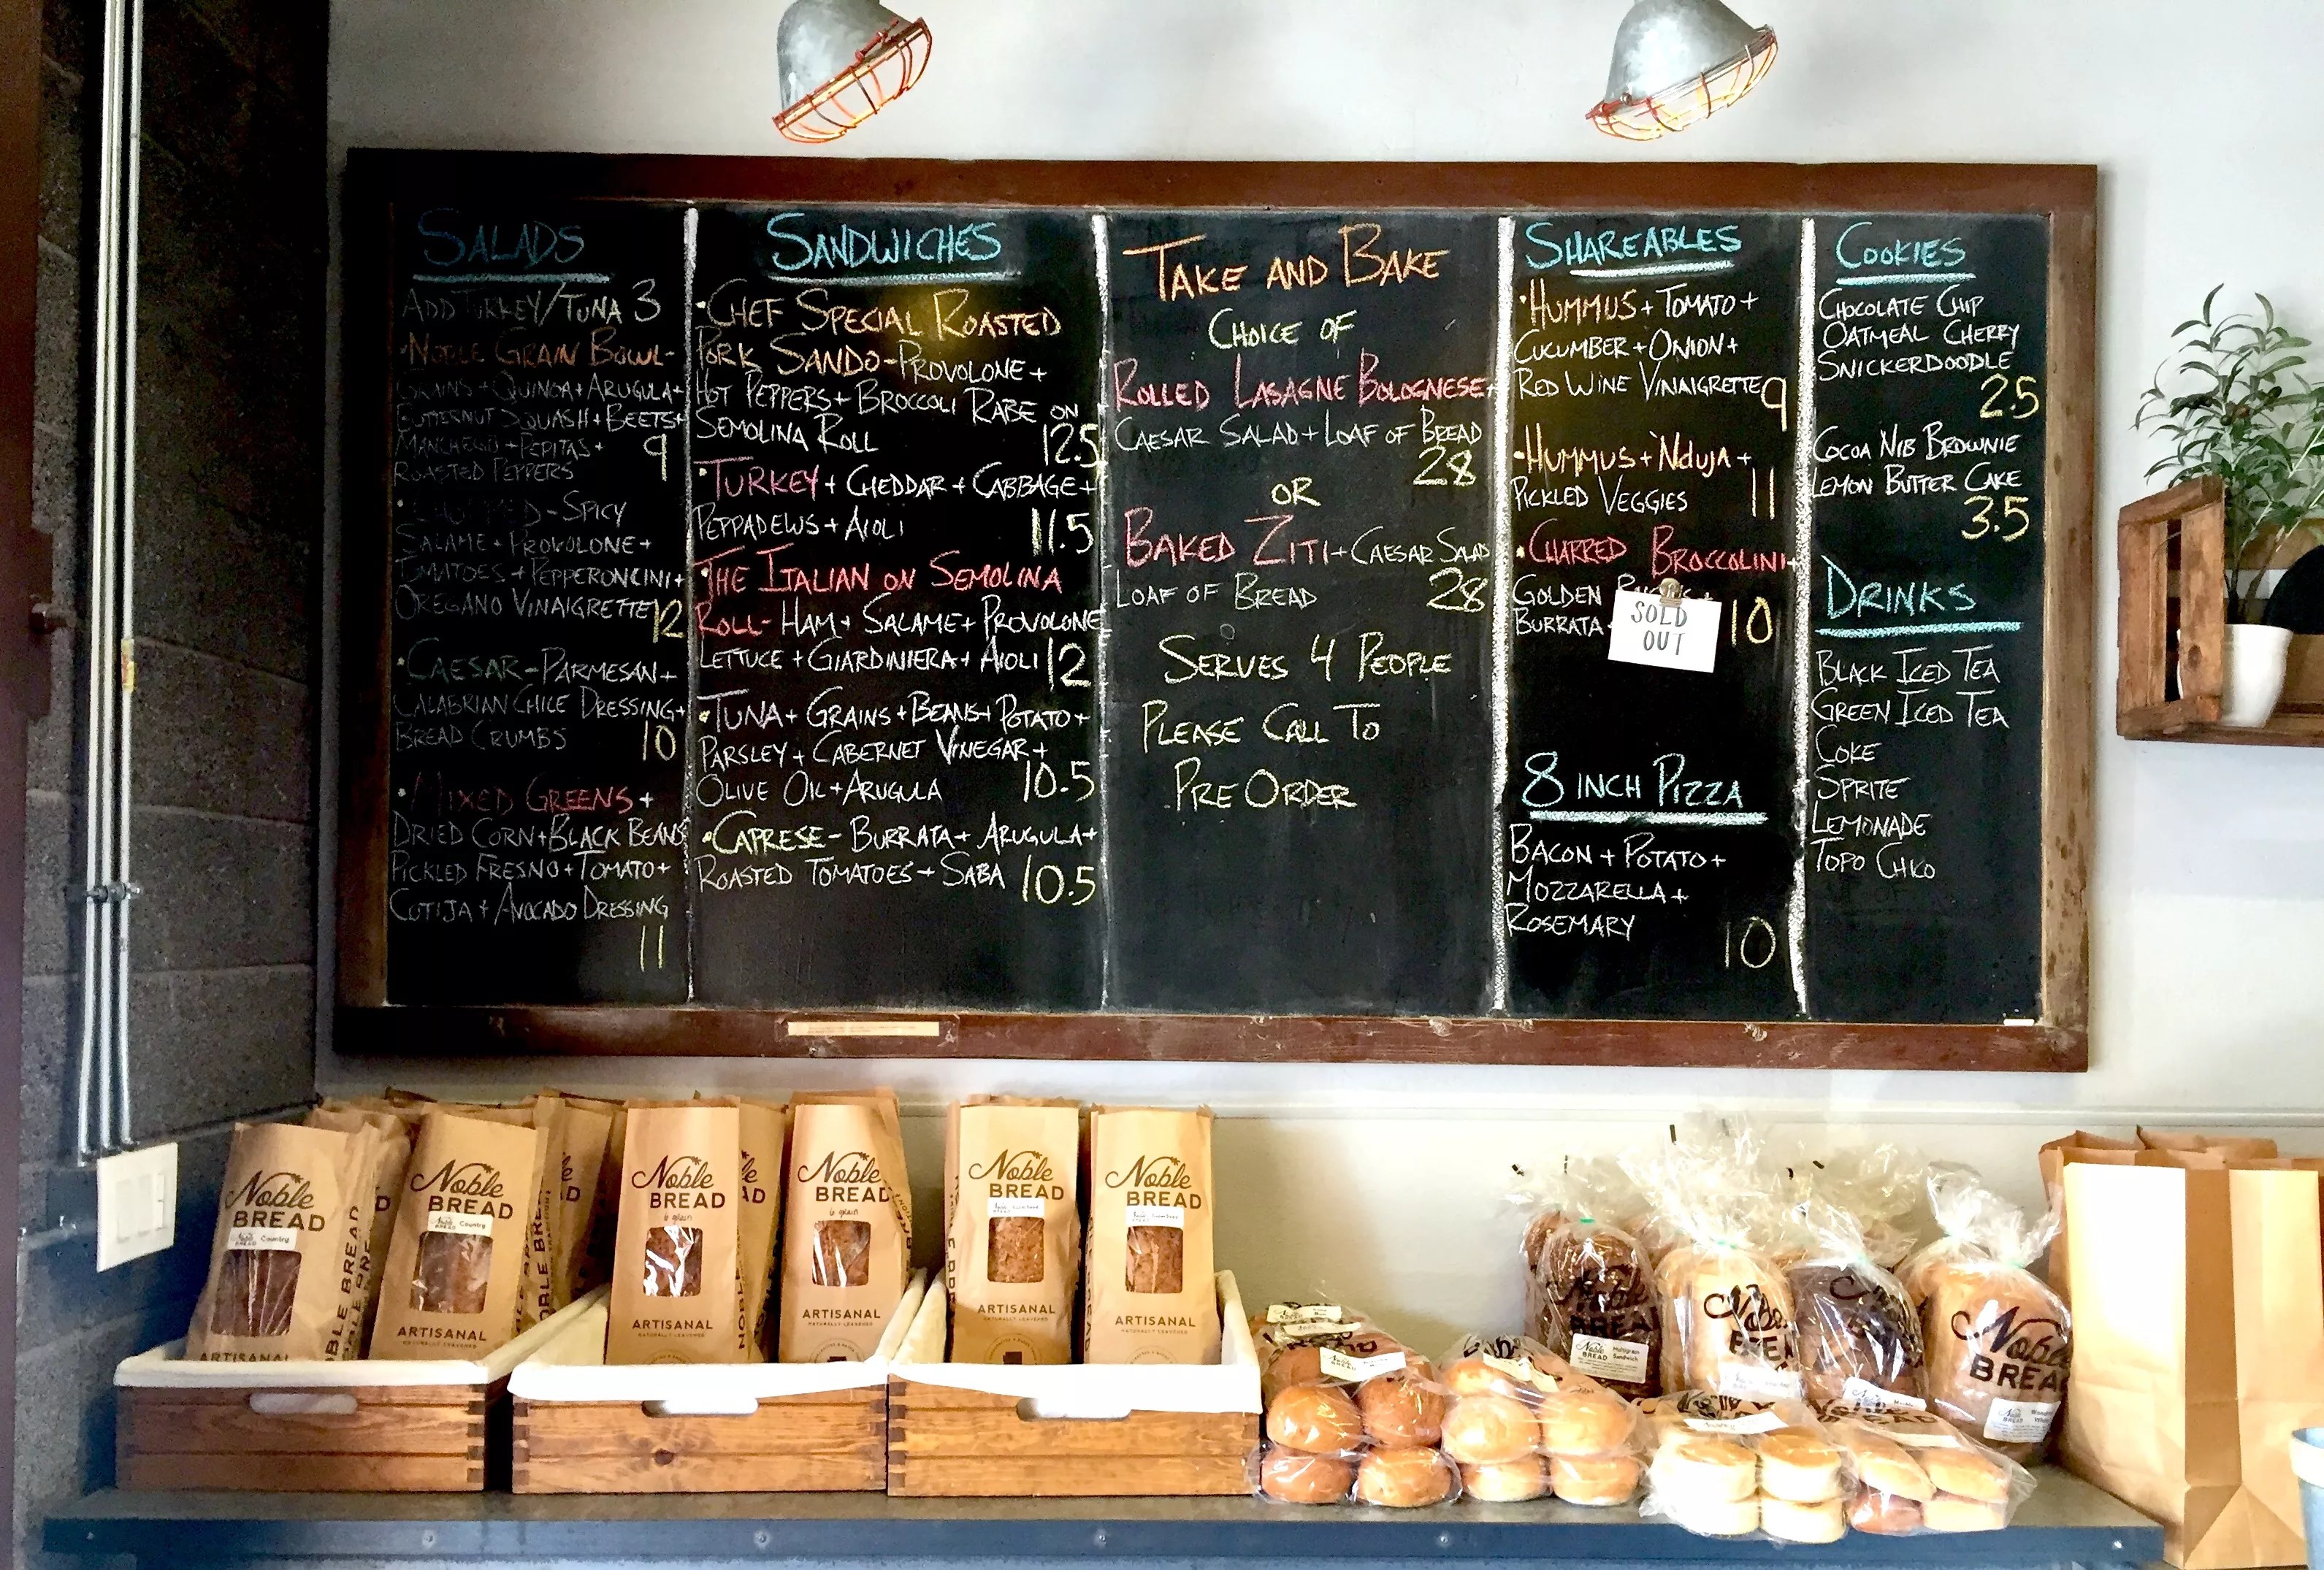 SALADS
ADD TURKEY/TUNA 3
•NOBLE GRAIN BOWL-
GRAINS+QUINOA+ARUGULA+
BUTTERNUT SQUASH+BEETS+
MANCHEGO+PEPITAS+ 9
ROASTED PEPPERS
•CHOPPED-SPICY
SALAME+PROVOLONE+
TOMATOES+PEPPERONCINI+
OREGANO VINAIGRETTE 12
•CAESAR-PARMESAN+
CALABRIAN CHILE DRESSING+
BREAD CRUMBS 10
•MIXED GREENS+
DRIED CORN+BLACK BEANS
PICKLED FRESNO+TOMATO+
COTIJA+AVOCADO DRESSING
11
SANDWICHES
•CHEF SPECIAL ROASTED
PORK SANDO-PROVOLONE+
HOT PEPPERS+BROCCOLI RABE ON
SEMOLINA ROLL 12.5
•TURKEY+CHEDDAR+CABBAGE+
PEPPADEWS+AIOLI 11.5
•THE ITALIAN ON SEMOLINA
ROLL-HAM+SALAME+PROVOLONE
LETTUCE+GIARDINIERA+AIOLI 12
•TUNA+GRAINS+BEANS+POTATO+
PARSLEY+CABERNET VINEGAR+
OLIVE OIL+ARUGULA 10.5
•CAPRESE-BURRATA+ARUGULA+
ROASTED TOMATOES+SABA 10.5
TAKE AND BAKE
CHOICE OF
ROLLED LASAGNE BOLOGNESE+
CAESAR SALAD+LOAF OF BREAD
28
OR
BAKED ZITI+CAESAR SALAD
LOAF OF BREAD 28
SERVES 4 PEOPLE
PLEASE CALL TO
PRE ORDER
SHAREABLES
•HUMMUS+TOMATO+
CUCUMBER+ONION+
RED WINE VINAIGRETTE 9
•HUMMUS+'NDUJA+
PICKLED VEGGIES 11
•CHARRED BROCCOLINI+
GOLDEN
BURRATA 10
SOLD
OUT
8 INCH PIZZA
BACON+POTATO+
MOZZARELLA+
ROSEMARY 10
COOKIES
CHOCOLATE CHIP
OATMEAL CHERRY
SNICKERDOODLE
2.5
COCOA NIB BROWNIE
LEMON BUTTER CAKE
3.5
DRINKS
BLACK ICED TEA
GREEN ICED TEA
COKE
SPRITE
LEMONADE
TOPO CHICO
Noble
BREAD
Country
ARTISANAL
NOBLE BREAD
Noble
BREAD
Country
ARTISANAL
NATURALLY LEAVENED
Noble
BREAD
6 grain
ARTISANAL
NATURALLY LEAVENED
Noble
BREAD
6 grain
ARTISANAL
NATURALLY LEAVENED
Noble
BREAD
ARTISANAL
NATURALLY LEAVENED
Noble
BREAD
ARTISANAL
NATURALLY LEAVENED
Noble
BREAD
Multigrain
Sandwich
Noble
BREAD
Noble
BREAD